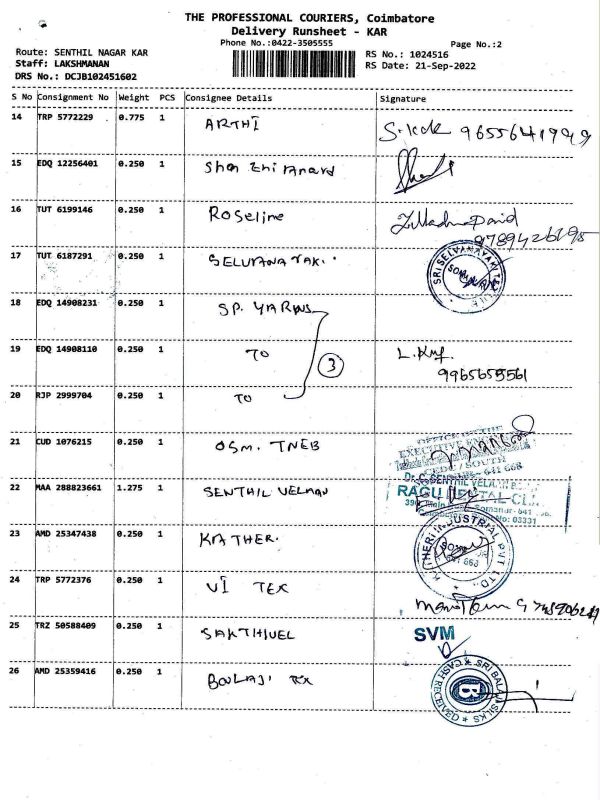 THE PROFESSIONAL COURIERS, Coimbatore
Delivery Runsheet - KAR
Phone No.:0422-3505555
Page No.:2
Route: SENTHIL NAGAR KAR
RS No.: 1024516
Staff: LAKSHMANAN
RS Date: 21-Sep-2022
DRS No.: DCJB102451602
S No Consignment No Weight PCS Consignee Details Signature
14 TRP 5772229 0.775 1 ARTHI 9655641949
15 EDQ 12256401 0.250 1
16 TUT 6199146 0.250 1 Roseline
17 TUT 6187291 0.250 1 SRI SELVANAYAKI
18 EDQ 14908231 0.250 1 SP. YARNS
19 EDQ 14908110 0.250 1 TO 3 L.
9965655561
20 RJP 2999704 0.250 1 TO
21 CUD 1076215 0.250 1 OSM. TNEB
22 MAA 288823661 1.275 1 SENTHIL VELMAN
Dr. SENTHIL VELAN
RAGU DENTAL
23 AMD 25347438 0.250 1 KATHERI
KATHERI INDUSTRIAL PVT. LTD.
24 TRP 5772376 0.250 1 VI TEX
25 TRZ 50588409 0.250 1 SAKTHIVEL SVM
26 AMD 25359416 0.250 1 TEX
SRI BALAJI SILKS
CASH RECEIVED
B